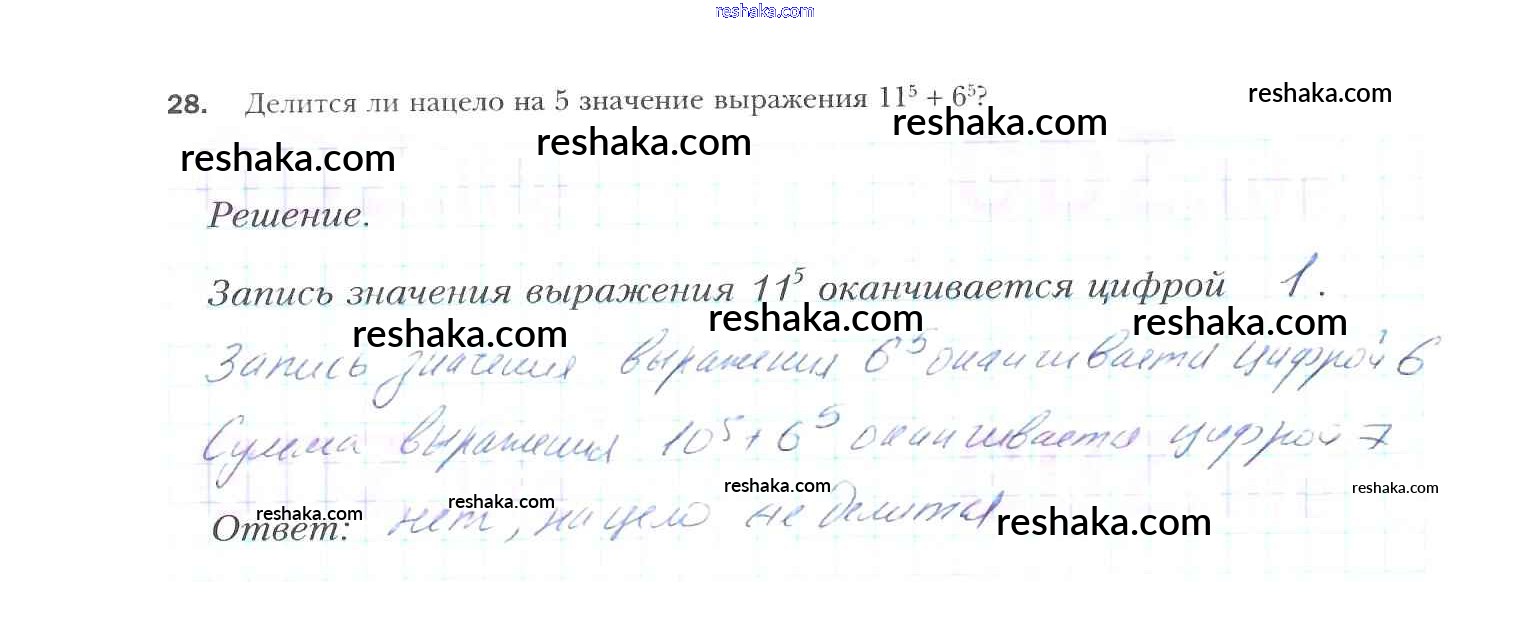 reshaka.com
28. Делится ли нацело на 5 значение выражения 11⁵ + 6⁵?
reshaka.com
reshaka.com
reshaka.com
reshaka.com
Решение.
Запись значения выражения 11⁵ оканчивается цифрой 1.
reshaka.com
reshaka.com
reshaka.com
Запись значения выражения 6⁵ оканчивается цифрой 6
Сумма выражения 10⁵+6⁵ оканчивается цифрой 7
reshaka.com
reshaka.com
reshaka.com
reshaka.com
Ответ: нет, нацело не делится
reshaka.com